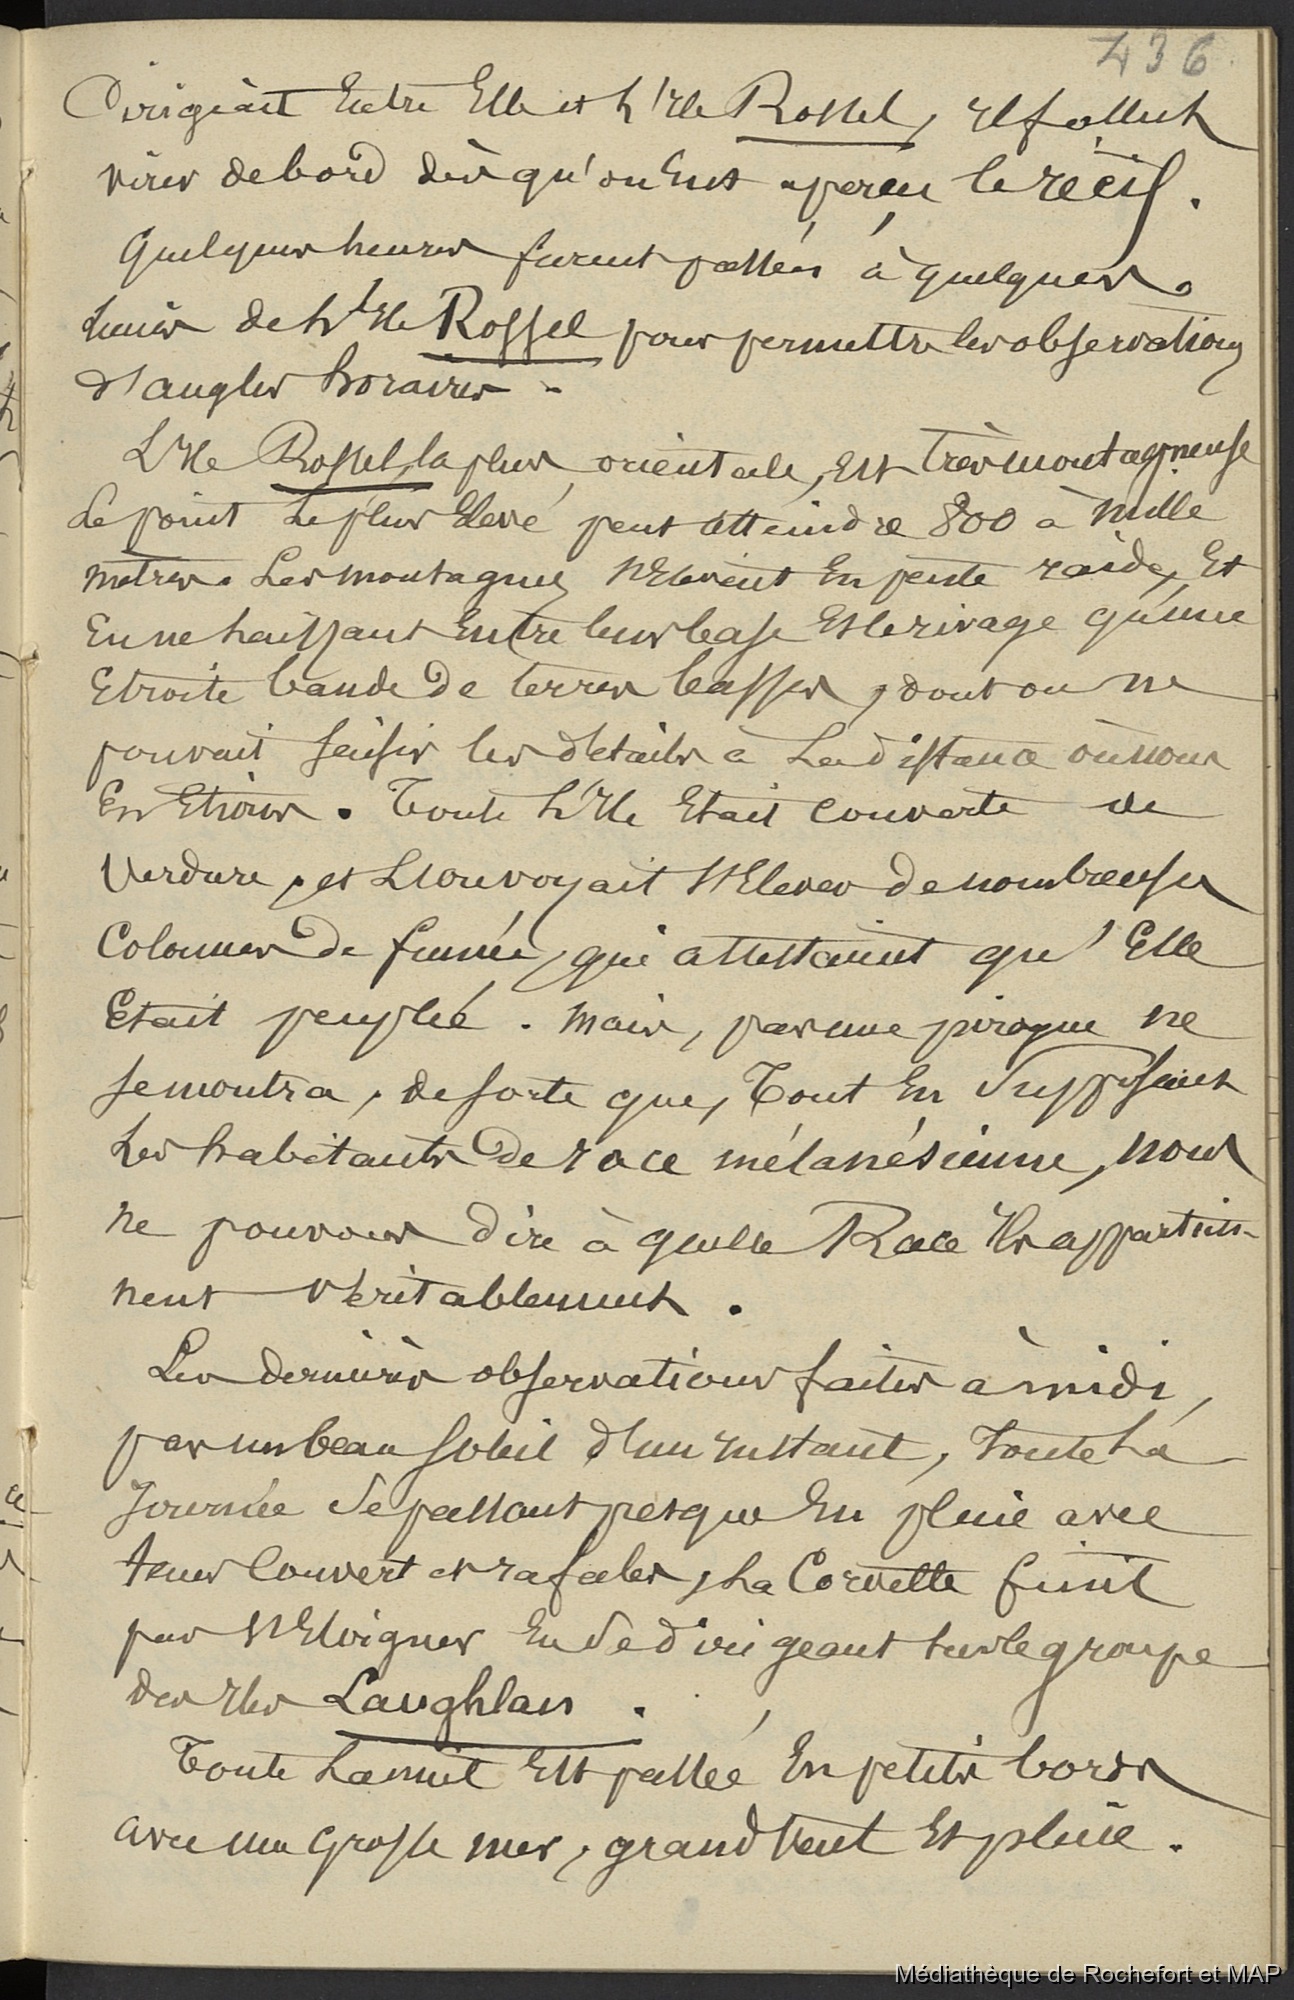 436
Dirigeait Entre Elle et L'Ile Rossel, Il fallut
virer de bord dès qu'on Eut aperçu le récif.
Quelques heures furent passées à quelques
lieues de L'Ile Rossel pour permettre les observations
d'angles horaires.
L'Ile Rossel, la plus orientale, Est très montagneuse
Le point Le plus Elevé peut atteindre 800 à mille
mètres. Les montagnes s'Elèvent En pente raide, Et
En ne laissant Entre leur base Et le rivage qu'une
Etroite bande de terres basses, dont on ne
pouvait saisir les détails à La distance où nous
En Etions. Toute L'Ile Etait couverte de
Verdure, et L'on voyait s'Elever de nombreuses
Colonnes de fumée, qui attestaient qu'Elle
Etait peuplée. Mais, pas une pirogue ne
se montra, de sorte que, Tout En Supposant
Les habitants de race mélanésienne, nous
ne pouvons dire à quelle Race Ils appartien-
nent véritablement.
Les dernières observations faites à midi,
par un beau soleil d'un Instant, Toute La
Journée Se passant presque En pluie avec
temps Couvert et rafales, La Corvette finit
par s'Eloigner En Se dirigeant sur le groupe
des Iles Laughlan.
Toute La nuit Est passée En petits bords
avec une Grosse mer, grand Vent Et pluie.
Médiathèque de Rochefort et MAP